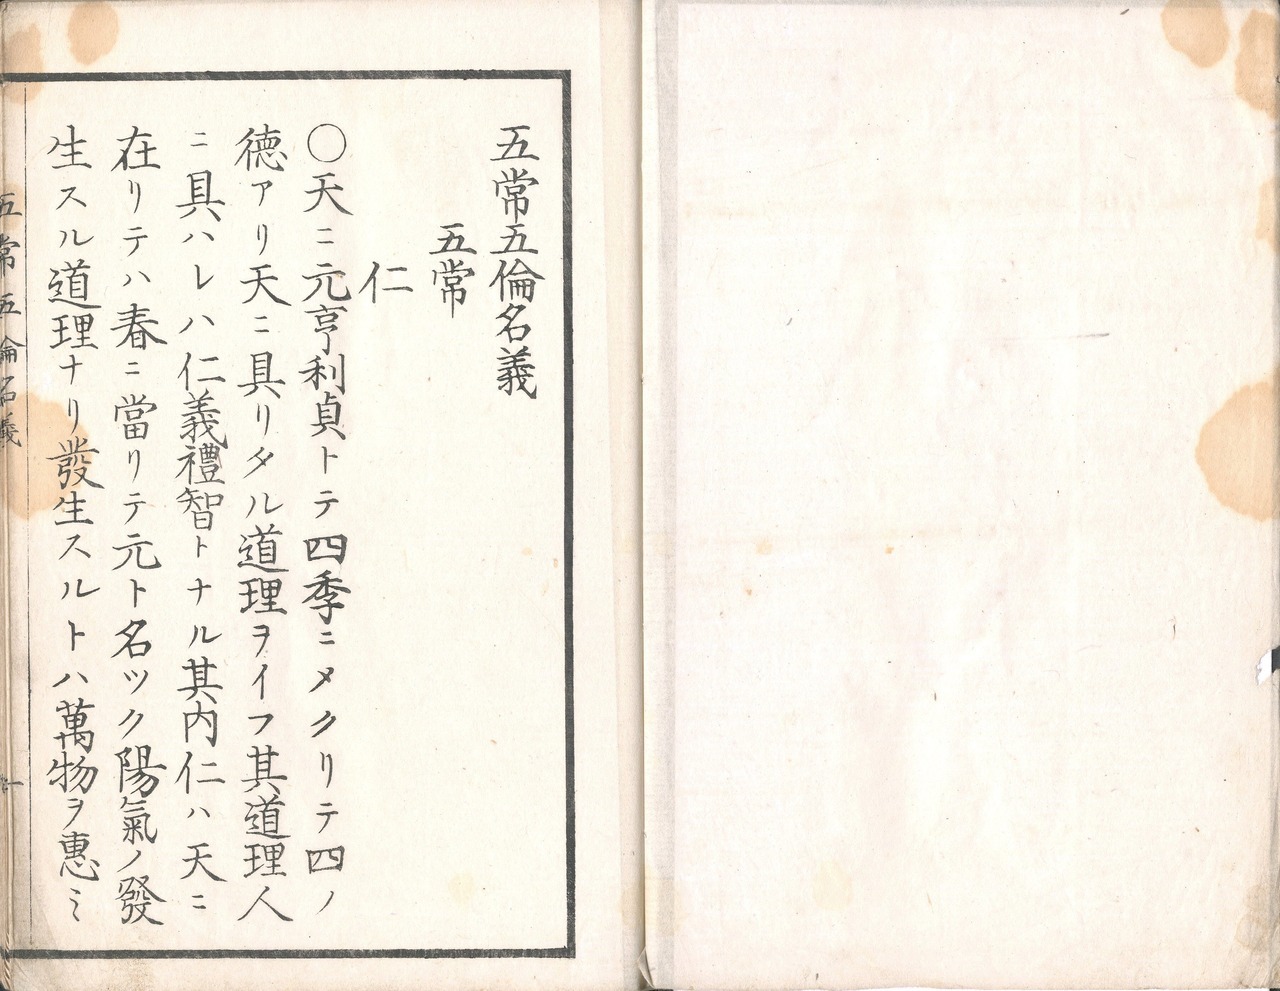 五常五倫名義
五常
仁
〇天ニ元亨利貞トテ四季ニメクリテ四ノ
徳アリ天ニ具リタル道理ヲイフ其道理人
ニ具ハレハ仁義禮智トナル其内仁ハ天ニ
在リテハ春ニ當リテ元ト名ツク陽氣ノ發
生スル道理ナリ發生スルトハ萬物ヲ惠ミ
五常五倫名義
一